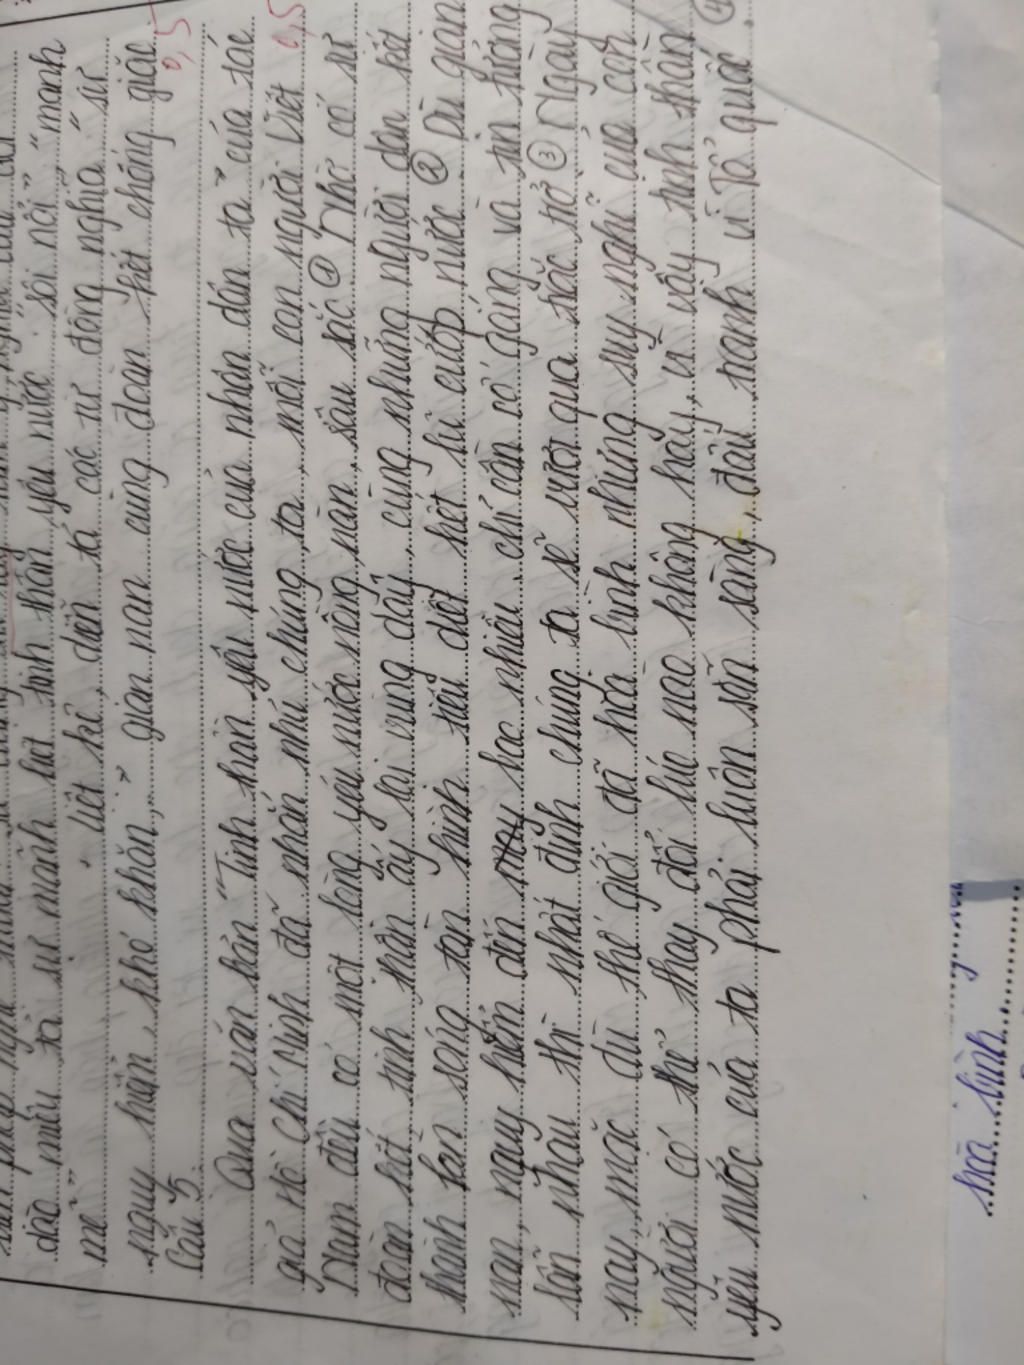 dào mẫu tả sự mãnh liệt tinh thần yêu nước "sôi nổi", "mạnh
mẽ" liệt kê, diễn tả các từ đồng nghĩa "sự
nguy hiểm, khó khăn," gian nan cùng đoàn kết chống giặc
0,5
Câu 5.
Qua văn bản "Tinh thần yêu nước của nhân dân ta" của tác
giả Hồ Chí Minh đã nhắn nhủ chúng ta, mỗi con người Việt
0,5
Nam đều có một lòng yêu nước nồng nàn, sâu sắc ① Nhờ có sự
đoàn kết tinh thần ấy lại vùng dậy, cùng những người dân kết
thành làn sóng tàn hình tiêu diệt hết lũ cướp nước ② Dù gian
nan, nguy hiểm đến hac nhiêu, chỉ cần cố gắng và tin tưởng
lẫn nhau thì nhất định chúng ta sẽ vượt qua trắc trở ③ Ngày
nay, mặc dù thế giới đã hoà bình nhưng suy nghĩ của con
người có thể thay đổi lúc nào không hay, vì vậy tinh thần
yêu nước của ta phải luôn sẵn sàng, đấu tranh vì Tổ quốc ④
hoà bình